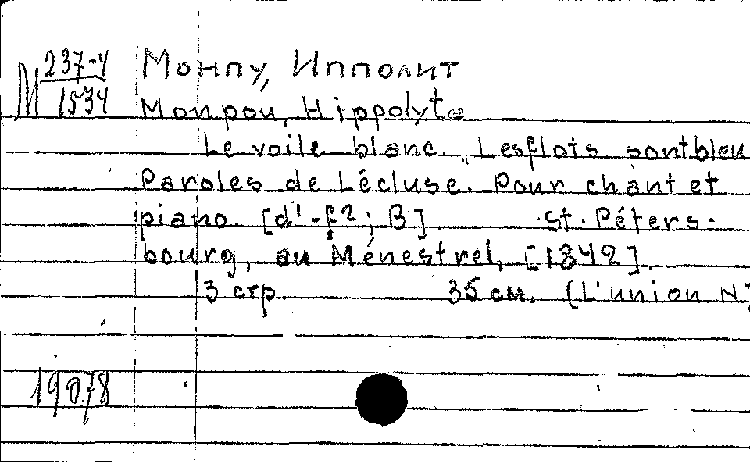 М 237-4/1534
Монпу, Ипполит
Monpou, Hippolyte
Le voile blanc. „Les flots sont bleu
Paroles de Lécluse. Pour chant et
piano. [d¹-f²; B]. St. Péters-
bourg, au Ménestrel, [1842].
3 стр. 35 см. (L'union N
19078